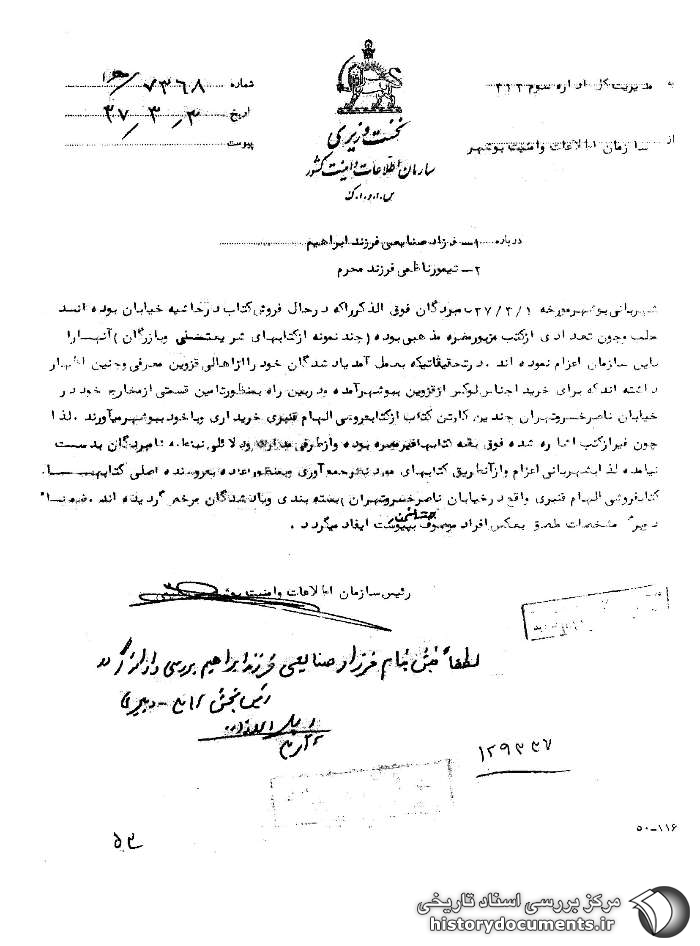 به مدیریت کل اداره سوم ۳۱۲
از سازمان اطلاعات و امنیت بوشهر
نخست وزیری
سازمان اطلاعات و امنیت کشور
س.ا.و.ا.ک
شماره ۷۳۶۸
تاریخ ۳۷/۳/۳
پیوست
درباره ۱- فرزاد صنایعی فرزند ابراهیم
۲- تیمور ناظمی فرزند محرم
شهربانی بوشهر مورخه ۳۷/۳/۱ نامبردگان فوق الذکر را که در حال فروش کتاب در حاشیه خیابان بوده اند
جلب و چون تعدادی از کتب مزبور مضره مذهبی بوده (چند نمونه از کتابهای شریعتی و بازرگان) آنها را
باین سازمان اعزام نموده اند. در تحقیقاتیکه بعمل آمد یاد شدگان خود را از اهالی قزوین معرفی و چنین اظهار
داشته اند که برای خرید اجناس لوکس از قزوین ببوشهر آمده و در بین راه بمنظور تامین قسمتی از مخارج خود در
خیابان ناصرخسرو تهران چندین کارتن کتاب از کتابفروشی الهام قنبری خریداری و با خود ببوشهر میآورند. لذا
چون غیر از کتب اشاره شده فوق بقیه کتابها غیر مضره بوده و از طرفی مدارک و دلائلی نامبردگان بدست
نیامده لذا بشهربانی اعزام و از آنطریق کتابهای مورد نظر جمع آوری و بمنظور اعاده بفروشنده اصلی کتابها
کتابفروشی الهام قنبری واقع در خیابان ناصرخسرو تهران) بسته بندی و یاد شدگان مرخص گردیده اند. ضمنا
دو برگ مشخصات ملصق بعکس افراد موصوف بپیوست ایفاد میگردد.
رئیس سازمان اطلاعات و امنیت بوشهر
لطفاً بنام فرزاد صنایعی فرزند ابراهیم بررسی
رئیس بخش ۳۱۲ - دبیری
۱۲۹۳۳۷
۵۰-۱۱۶
مرکز بررسی اسناد تاریخی
historydocuments.ir